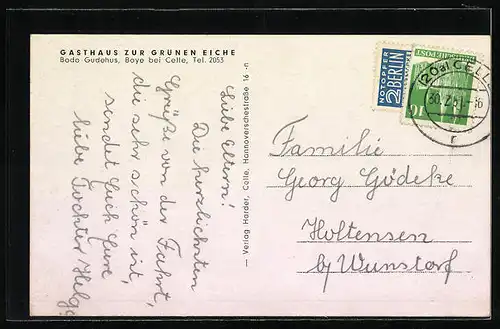 GASTHAUS ZUR GRÜNEN EICHE
Bodo Gudehus, Boye bei Celle, Tel. 2053
Liebe Eltern!
Die herzlichsten
Grüße von der Fahrt,
die sehr schön ist,
sendet Euch Eure
liebe Tochter Helga
— Verlag Harder, Celle, Hannoverschestraße 16 -n
NOTOPFER
2 BERLIN
(20a) CELLE
30.7.51.-16
r
10
POST
Familie
Georg Gödeke
Holtensen
b/ Wunstorf